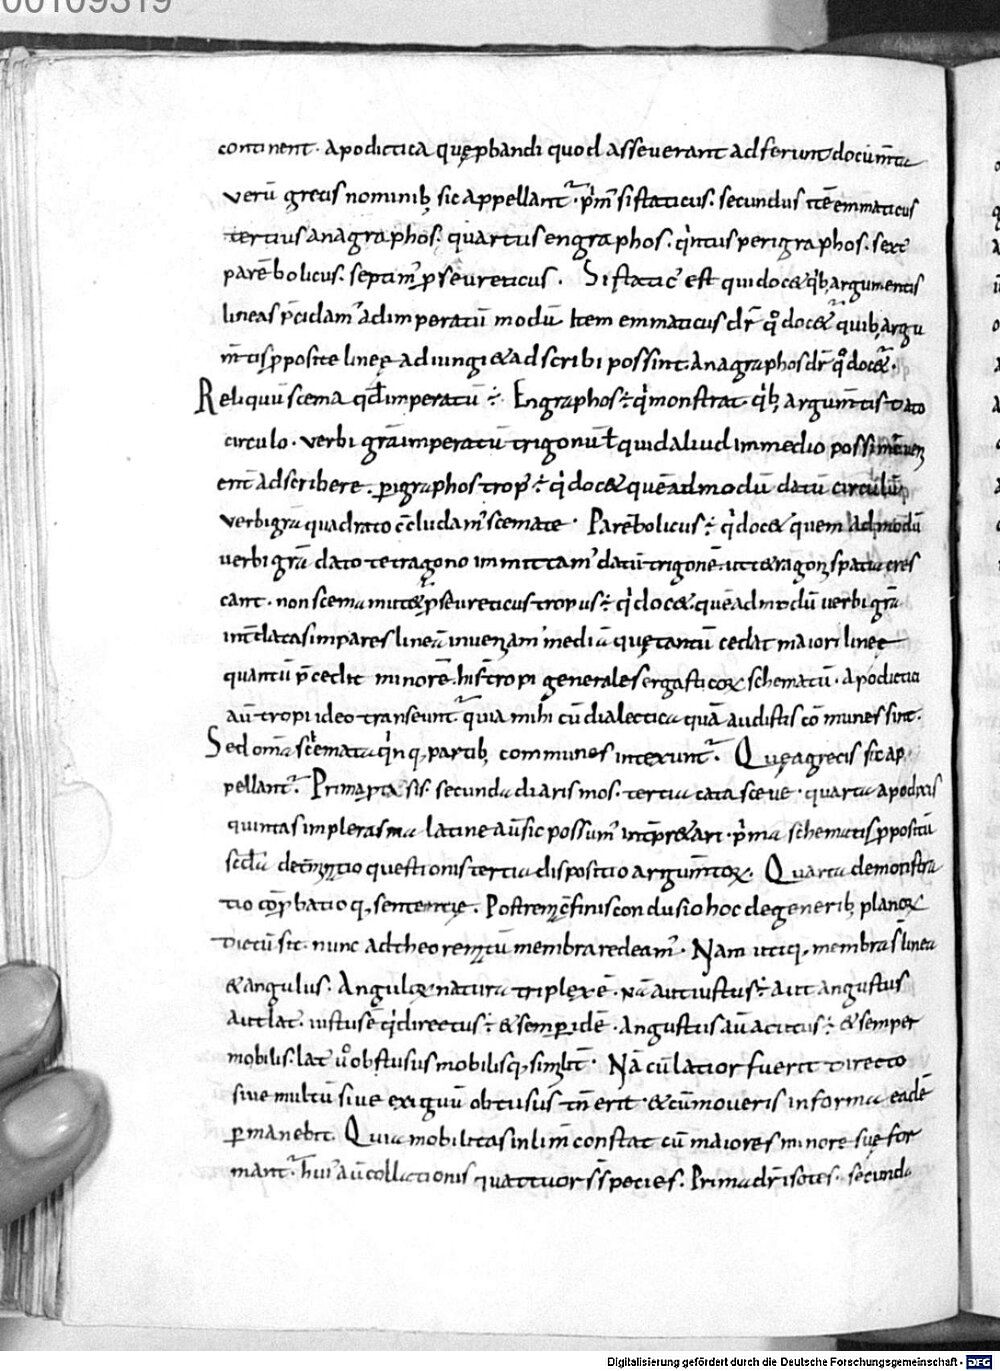 00109319
continent. apodictica quę pbandi quod asseuerant adferunt docum̄ta
verū grecis nominib; sic appellant᷑. p̍m᷑ sistaticus. secundus tm̄emmaticus
tertius anagraphos. quartus engraphos. q̍ntus perigraphos. sext᷑
parēbolicus. septim᷑ pseureticus. Sistatic᷑ est qui doc& q̍b; argumentis
lineas p̄cidam᷑ ad imperatū modū Item emmaticus dr̄ qͦ doc& quib; argu
m̄tis pposite lineę adiungi & adscribi possint. anagraphos dr̄ qͦ doc&.
Reliquū scema qđ imperatū ÷ Engraphos ÷ q̍ monstrat q̍b; argum̄tis dato
circulo. verbi grā imperatū trigonū ł quid aliud in medio possim᷑ inuen
ent adscribere. pigraphos trop᷑ ÷ q̍ doc& quēadmodū datū circulū
verbi grā quadrato c̄cludam᷑ scemate. Parēbolicus ÷ q̍ doc& quem admodū
verbi grā dato tetragono inmittam᷑ datū trigonē ut t&ragoni spatia cres
cant. non scema mut& pseureticus tropus ÷ q̍ doc&. quēadmodū verbi grā
int̄ datas impares lineā inueniam᷑ mediā quę tantū cedat maiori lineę
quantū p̄cedit minorē. hi s̄ tropi generales ergasticoꝝ schematū. apodictici
aū tropi ideo transeunt᷑ quia mihi cū dialectica quā audistis cōmunes sint.
Sed om̄ia scēmata q̍nq; partib; communes intexunt᷑. Quę a grecis sic ap
pellant᷑. Prima ptasis. secunda diarismos. tertia catasceue. quarta apodixis
quinta simplerasma latine aū sic possum᷑ int̄pr&ari. p̍ma schematis ppositū
scđa det̄minatio questionis tertia dispositio argum̄toꝝ. Quarta demonstra
tio c̄pbatioq; sententię. Postrema ē finis conclusio hoc de generib; planoꝝ
dictū sit. nunc ad theorematū membra redeam᷑. Nam uticiq; membra s̄ linea
& angulus. Anguloꝝ natura triplex ē. nā aut iustus ÷ aut angustus
aut lat᷑. iustus ē q̍ directus ÷ & semp idē. angustus aū acutus ÷ & semper
mobilis. lat᷑ uͦ obstusus mobilisq; similit̄. Nā cū latior fuerit directo
siue multū siue exiguū obtusus tn̄ erit. & cū moueris in forma eadē
pmanebit. Quia mobilitas in lim̄ constat cū maiores minore suę for
mant᷑. hui᷑ aū collationis quattuor s̄ species. Prima dr̄ isotes. secunda
Digitalisierung gefördert durch die Deutsche Forschungsgemeinschaft - DFG